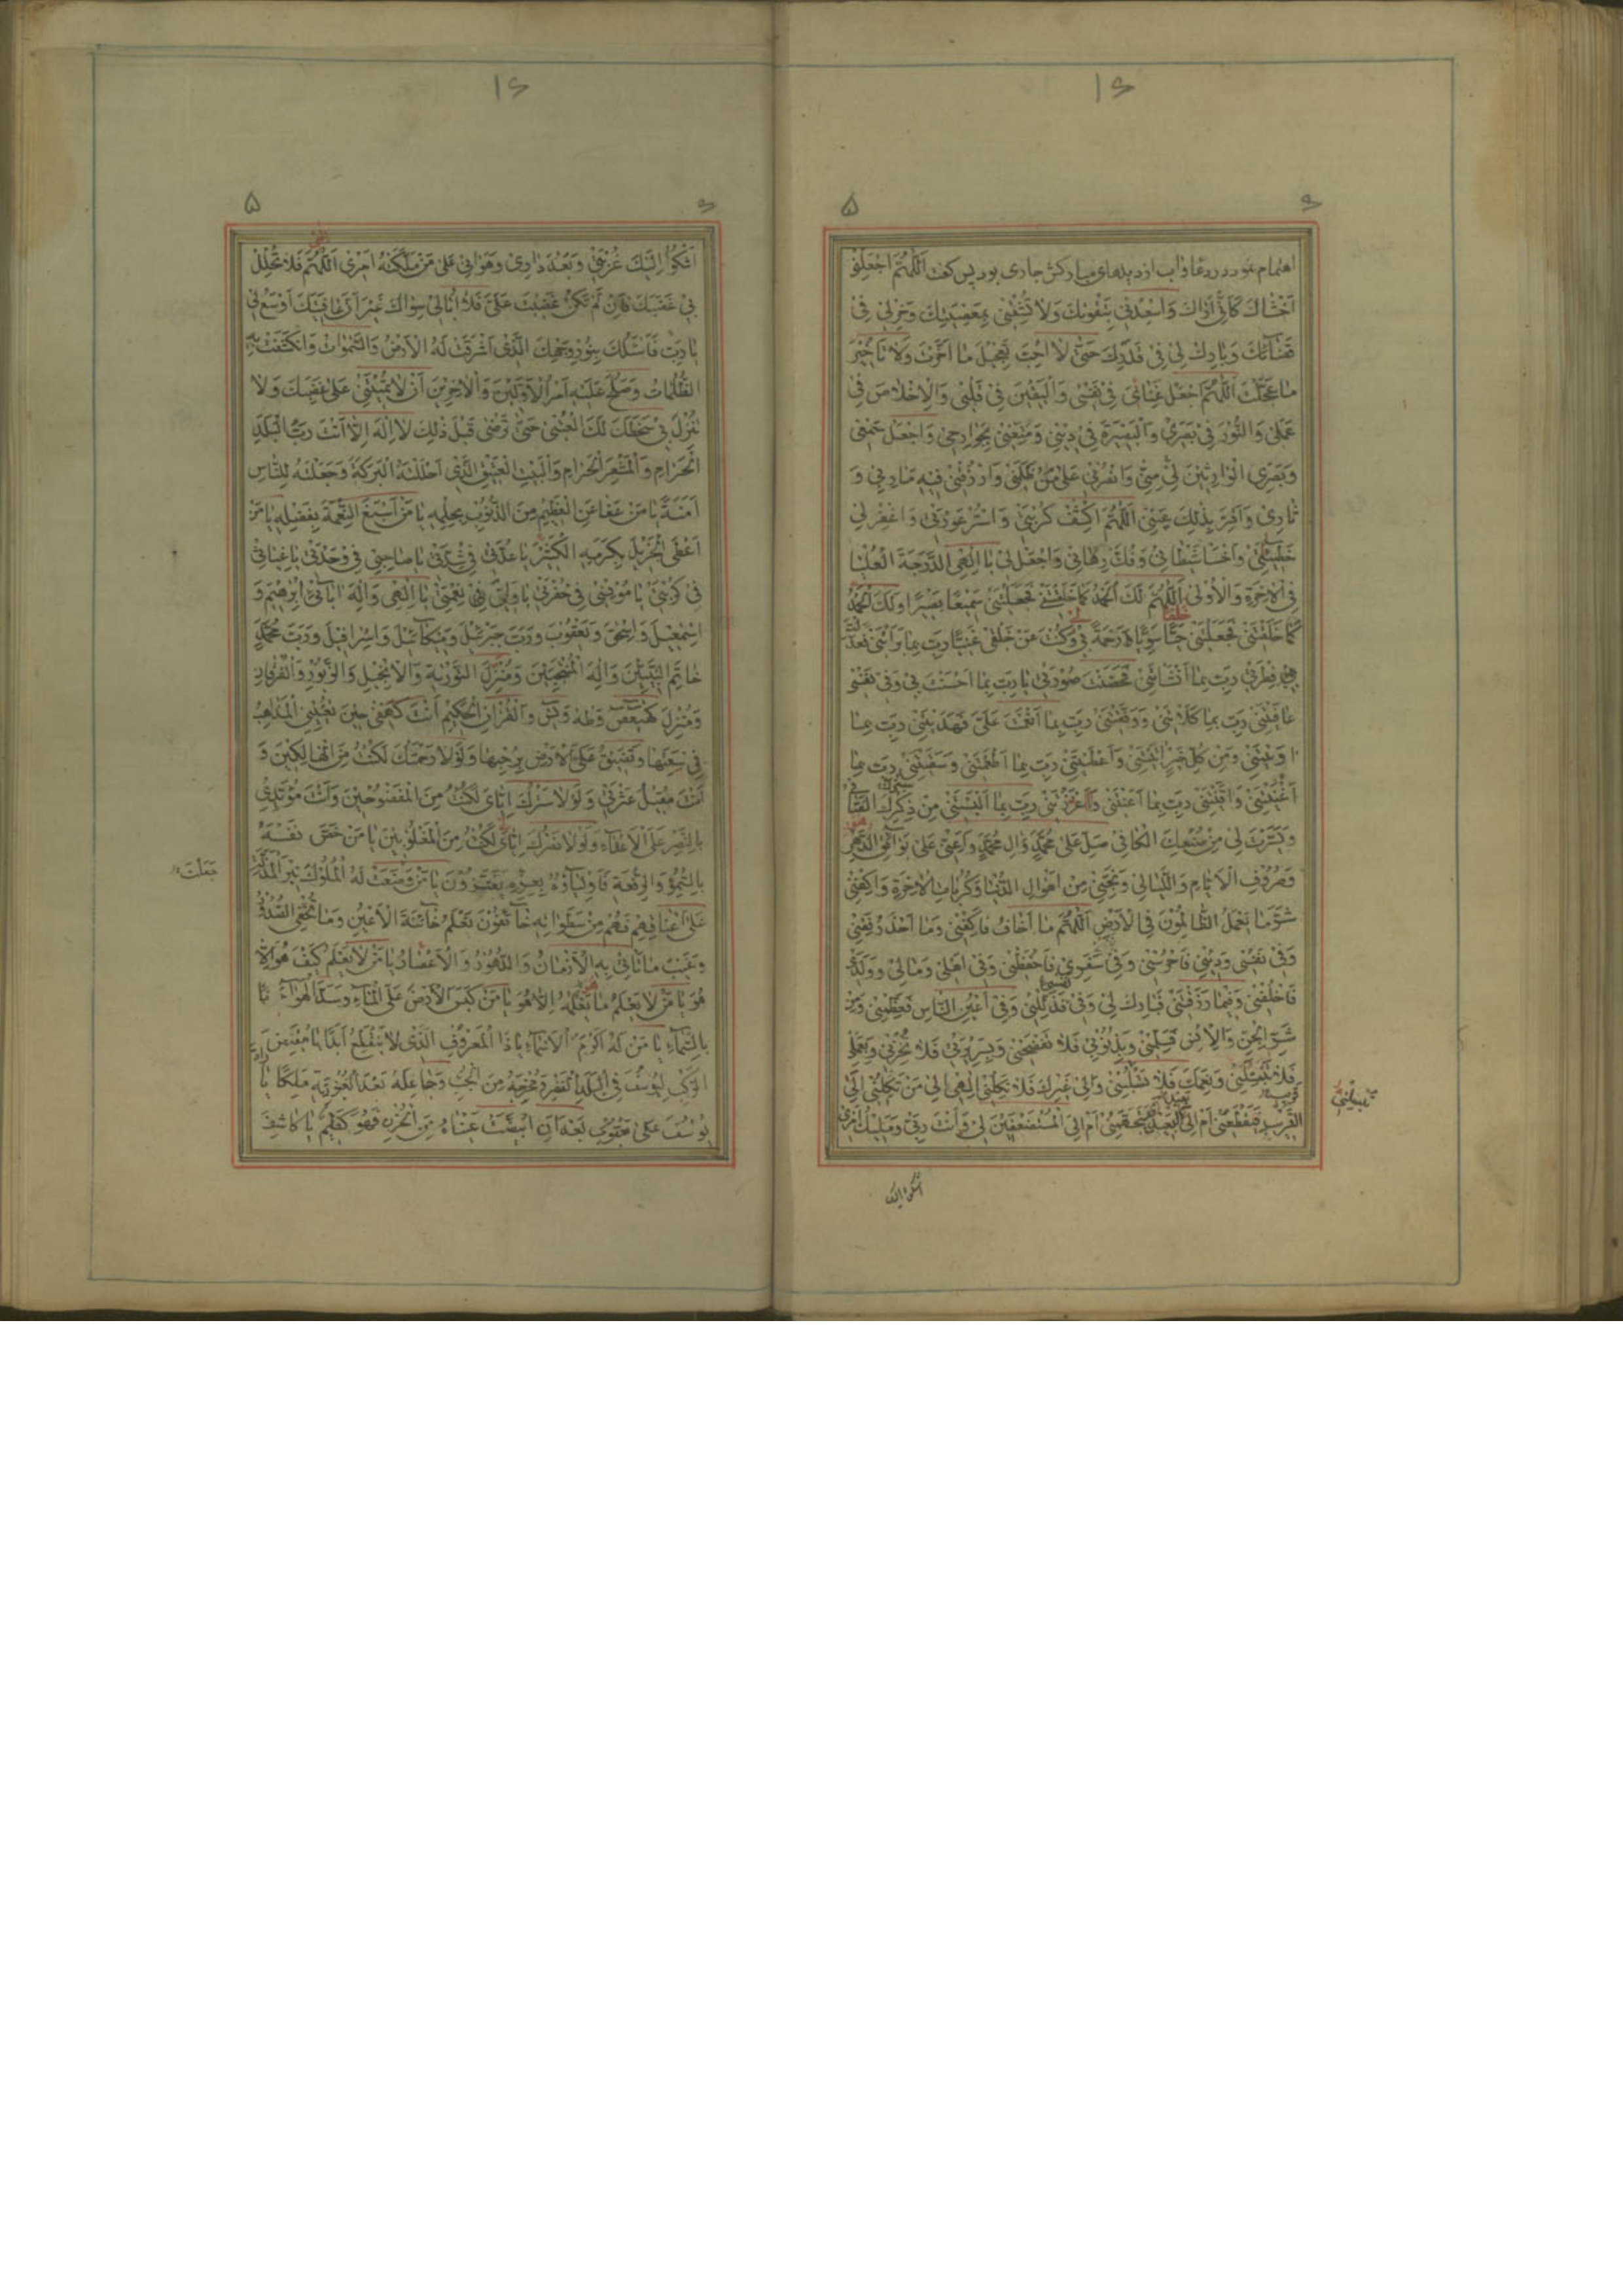 ۱۶
۵
۶
اهتمام نمود در دعا و آب از دیدهای مبارکش جاری بود پس گفت اَللّٰهُمَّ اجْعَلْنِی
اَخْشَاكَ كَاَنِّی اَرَاكَ وَاَسْعِدْنِی بِتَقْوٰیكَ وَلَا تُشْقِنِی بِمَعْصِیَتِكَ وَخِرْلِی فِی
قَضَآئِكَ وَبَارِكْ لِی فِی قَدَرِكَ حَتّٰی لَا اُحِبَّ تَعْجِیلَ مَا اَخَّرْتَ وَلَا تَاْخِیرَ
مَا عَجَّلْتَ اَللّٰهُمَّ اجْعَلْ غِنَایَ فِی نَفْسِی وَالْیَقِینَ فِی قَلْبِی وَالْاِخْلَاصَ فِی
عَمَلِی وَالنُّورَ فِی بَصَرِی وَالْبَصِیرَةَ فِی دِینِی وَمَتِّعْنِی بِجَوَارِحِی وَاجْعَلْ سَمْعِی
وَبَصَرِی الْوَارِثَیْنِ مِنِّی وَانْصُرْنِی عَلٰی مَنْ ظَلَمَنِی وَارْزُقْنِی فِیهِ مَاٰرِبِی وَ
ثَارِی وَاَقِرَّ بِذٰلِكَ عَیْنِی اَللّٰهُمَّ اكْشِفْ كُرْبَتِی وَاسْتُرْ عَوْرَتِی وَاغْفِرْ لِی
خَطِیئَتِی وَاخْسَاْ شَیْطَانِی وَفُكَّ رِهَانِی وَاجْعَلْ لِی یَا اِلٰهِی الدَّرَجَةَ الْعُلْیَا
فِی الْاٰخِرَةِ وَالْاُولٰی اَللّٰهُمَّ لَكَ الْحَمْدُ كَمَا خَلَقْتَنِی فَجَعَلْتَنِی سَمِیعًا بَصِیرًا وَلَكَ الْحَمْدُ
كَمَا خَلَقْتَنِی فَجَعَلْتَنِی سَوِیًّا رَحْمَةً بِی وَكُنْتَ عَنْ خَلْقِی غَنِیًّا رَبِّ بِمَا بَرَاْتَنِی فَعَدَّلْتَ
فِطْرَتِی رَبِّ بِمَا اَنْشَاْتَنِی فَحَسَّنْتَ صُورَتِی یَا رَبِّ بِمَا اَحْسَنْتَ بِی وَفِی نَفْسِی
عَافَیْتَنِی رَبِّ بِمَا كَلَاْتَنِی وَوَفَّقْتَنِی رَبِّ بِمَا اَنْعَمْتَ عَلَیَّ فَهَدَیْتَنِی رَبِّ بِمَا
وَمِنْ كُلِّ خَیْرٍ وَاَعْطَیْتَنِی رَبِّ بِمَا اَطْعَمْتَنِی وَسَقَیْتَنِی رَبِّ بِمَا
اَغْنَیْتَنِی وَاَقْنَیْتَنِی رَبِّ بِمَا اَعَنْتَنِی وَاَعْزَزْتَنِی رَبِّ بِمَا اَلْبَسْتَنِی مِنْ
وَیَسَّرْتَ لِی مِنْ صُنْعِكَ الْكَافِی صَلِّ عَلٰی مُحَمَّدٍ وَاٰلِ مُحَمَّدٍ وَاَعِنِّی عَلٰی بَوَآئِقِ الدَّهْرِ
وَصُرُوفِ الْاَیَّامِ وَاللَّیَالِی وَنَجِّنِی مِنْ اَهْوَالِ الدُّنْیَا وَكُرُبَاتِ الْاٰخِرَةِ وَاكْفِنِی
شَرَّ مَا یَعْمَلُ الظَّالِمُونَ فِی الْاَرْضِ اَللّٰهُمَّ مَا اَخَافُ فَاكْفِنِی وَمَا اَحْذَرُ فَقِنِی
وَفِی نَفْسِی وَدِینِی فَاحْرُسْنِی وَفِی سَفَرِی فَاحْفَظْنِی وَفِی اَهْلِی وَمَالِی وَوَلَدِی
فَاخْلُفْنِی وَفِیمَا رَزَقْتَنِی فَبَارِكْ لِی وَفِی نَفْسِی فَذَلِّلْنِی وَفِی اَعْیُنِ النَّاسِ فَعَظِّمْنِی وَمِنْ
شَرِّ الْجِنِّ وَالْاِنْسِ فَسَلِّمْنِی وَبِذُنُوبِی فَلَا تَفْضَحْنِی وَبِسَرِیرَتِی فَلَا تُخْزِنِی وَبِعَمَلِی
فَلَا تَبْتَلِنِی وَنِعَمَكَ فَلَا تَسْلُبْنِی وَاِلٰی غَیْرِكَ فَلَا تَكِلْنِی اِلٰهِی اِلٰی مَنْ تَكِلُنِی اِلٰی
الْقَرِیبِ فَیَقْطَعُنِی اَمْ اِلَی الْبَعِیدِ فَیَتَجَهَّمُنِی اَمْ اِلَی الْمُسْتَضْعِفِینَ لِی وَاَنْتَ رَبِّی وَمَلِیكُ اَمْرِی
اشكو الیك
۱۶
۵
۶
اَشْكُو اِلَیْكَ غُرْبَتِی وَبُعْدَ دَارِی وَهَوَانِی عَلٰی مَنْ مَلَّكْتَهُ اَمْرِی اَللّٰهُمَّ فَلَا تُحْلِلْ
بِی غَضَبَكَ فَاِنْ لَمْ تَكُنْ غَضِبْتَ عَلَیَّ فَلَا اُبَالِی سِوَاكَ غَیْرَ اَنَّ عَافِیَتَكَ اَوْسَعُ لِی
یَا رَبِّ فَاَسْئَلُكَ بِنُورِ وَجْهِكَ الَّذِی اَشْرَقَتْ لَهُ الْاَرْضُ وَالسَّمٰوَاتُ وَانْكَشَفَتْ بِهِ
الظُّلُمَاتُ وَصَلُحَ عَلَیْهِ اَمْرُ الْاَوَّلِینَ وَالْاٰخِرِینَ اَنْ لَا تُمِیتَنِی عَلٰی غَضَبِكَ وَلَا
تُنْزِلَ بِی سَخَطَكَ لَكَ الْعُتْبٰی حَتّٰی تَرْضٰی قَبْلَ ذٰلِكَ لَا اِلٰهَ اِلَّا اَنْتَ رَبَّ الْبَلَدِ
الْحَرَامِ وَالْمَشْعَرِ الْحَرَامِ وَالْبَیْتِ الْعَتِیقِ الَّذِی اَحْلَلْتَهُ الْبَرَكَةَ وَجَعَلْتَهُ لِلنَّاسِ
اَمَنَةً یَا مَنْ عَفَا عَنِ الْعَظِیمِ مِنَ الذُّنُوبِ بِحِلْمِهِ یَا مَنْ اَسْبَغَ النِّعْمَةَ بِفَضْلِهِ یَا مَنْ
اَعْطَی الْجَزِیلَ بِكَرَمِهِ الْكَثِیرِ یَا عُدَّتِی فِی شِدَّتِی یَا صَاحِبِی فِی وَحْدَتِی یَا غِیَاثِی
فِی كُرْبَتِی یَا مُونِسِی فِی حُفْرَتِی یَا وَلِیِّی فِی نِعْمَتِی یَا اِلٰهِی وَاِلٰهَ اٰبَآئِی اِبْرٰهِیمَ وَ
اِسْمٰعِیلَ وَاِسْحٰقَ وَیَعْقُوبَ وَرَبَّ جَبْرَئِیلَ وَمِیكَآئِیلَ وَاِسْرَافِیلَ وَرَبَّ مُحَمَّدٍ
خَاتَمِ النَّبِیِّینَ وَاٰلِهِ الْمُنْتَجَبِینَ وَمُنْزِلَ التَّوْرٰیةِ وَالْاِنْجِیلِ وَالزَّبُورِ وَالْفُرْقَانِ
وَمُنْزِلَ كٓهٰیٰعٓصٓ وَطٰهٰ وَیٰسٓ وَالْقُرْاٰنِ الْحَكِیمِ اَنْتَ كَهْفِی حِینَ تُعْیِینِی الْمَذَاهِبُ
فِی سَعَتِهَا وَتَضِیقُ عَلَیَّ الْاَرْضُ بِرُحْبِهَا وَلَوْلَا رَحْمَتُكَ لَكُنْتُ مِنَ الْهَالِكِینَ وَ
اَنْتَ مُقِیلُ عَثْرَتِی وَلَوْلَا سَتْرُكَ اِیَّایَ لَكُنْتُ مِنَ الْمَفْضُوحِینَ وَاَنْتَ مُؤَیِّدِی
بِالنَّصْرِ عَلَی الْاَعْدَآءِ وَلَوْلَا نَصْرُكَ اِیَّایَ لَكُنْتُ مِنَ الْمَغْلُوبِینَ یَا مَنْ خَصَّ نَفْسَهُ
بِالسُّمُوِّ وَالرِّفْعَةِ فَاَوْلِیَآؤُهُ بِعِزِّهِ یَعْتَزُّونَ یَا مَنْ وَضَعَتْ لَهُ الْمُلُوكُ نِیرَ الْمَذَلَّةِ
جعلت
عَلٰی اَعْنَاقِهِمْ فَهُمْ مِنْ سَطَوَاتِهِ خَآئِفُونَ یَعْلَمُ خَآئِنَةَ الْاَعْیُنِ وَمَا تُخْفِی الصُّدُورُ
وَغَیْبَ مَا تَاْتِی بِهِ الْاَزْمَانُ وَالدُّهُورُ یَا مَنْ لَا یَعْلَمُ كَیْفَ هُوَ اِلَّا
هُوَ یَا مَنْ لَا یَعْلَمُ مَا یَعْلَمُهُ اِلَّا هُوَ یَا مَنْ كَبَسَ الْاَرْضَ عَلَی الْمَآءِ وَسَدَّ الْهَوَآءَ
بِالسَّمَآءِ یَا مَنْ لَهُ اَكْرَمُ الْاَسْمَآءِ یَا ذَا الْمَعْرُوفِ الَّذِی لَا یَنْقَطِعُ اَبَدًا یَا مُقَیِّضَ
الرَّكْبِ لِیُوسُفَ فِی الْبَلَدِ الْقَفْرِ وَمُخْرِجَهُ مِنَ الْجُبِّ وَجَاعِلَهُ بَعْدَ الْعُبُودِیَّةِ مَلِكًا یَا
یُوسُفَ عَلٰی یَعْقُوبَ بَعْدَ اَنِ ابْیَضَّتْ عَیْنَاهُ مِنَ الْحُزْنِ فَهُوَ كَظِیمٌ یَا كَاشِفَ